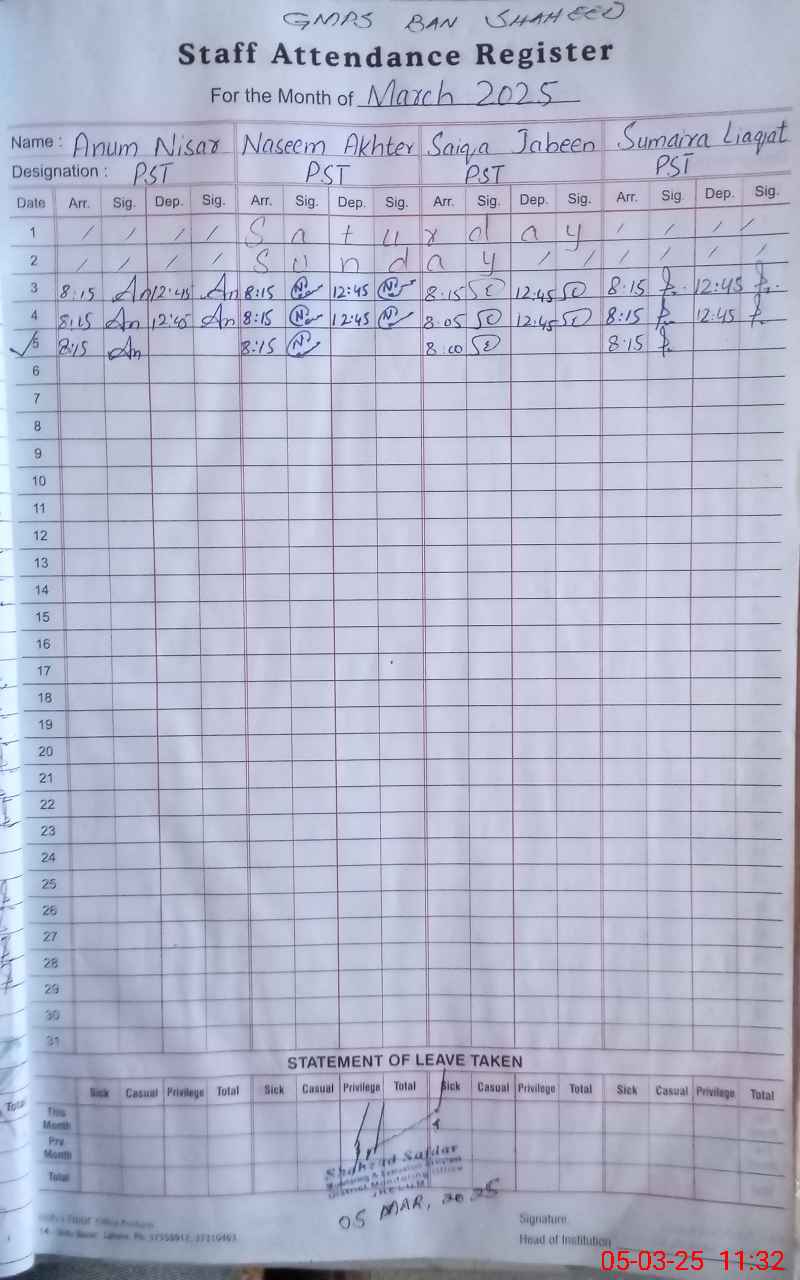 GMPS BAN SHAHEED
Staff Attendance Register
For the Month of March 2025
Name : Anum Nisar Naseem Akhter Saiqa Jabeen Sumaira Liaqat
Designation : PST PST PST PST
Date Arr. Sig. Dep. Sig. Arr. Sig. Dep. Sig. Arr. Sig. Dep. Sig. Arr. Sig. Dep. Sig.
1 / / / / S a t u r d a y / / / /
2 / / / / S u n d a y / / / / / /
3 8:15 An 12:45 An 8:15 12:45 8:15 12:45 8:15 12:45
4 8:15 An 12:45 An 8:15 12:45 8:05 12:45 8:15 12:45
5 8:15 An 8:15 8:00 8:15
6
7
8
9
10
11
12
13
14
15
16
17
18
19
20
21
22
23
24
25
26
27
28
29
30
31
STATEMENT OF LEAVE TAKEN
Sick Casual Privilege Total Sick Casual Privilege Total Sick Casual Privilege Total Sick Casual Privilege Total
This Month
Prv. Month
Total
Shahzad Safdar
District Monitoring Office
JHELUM
05 MAR, 2025
Signature.
Head of Institution
05-03-25 11:32